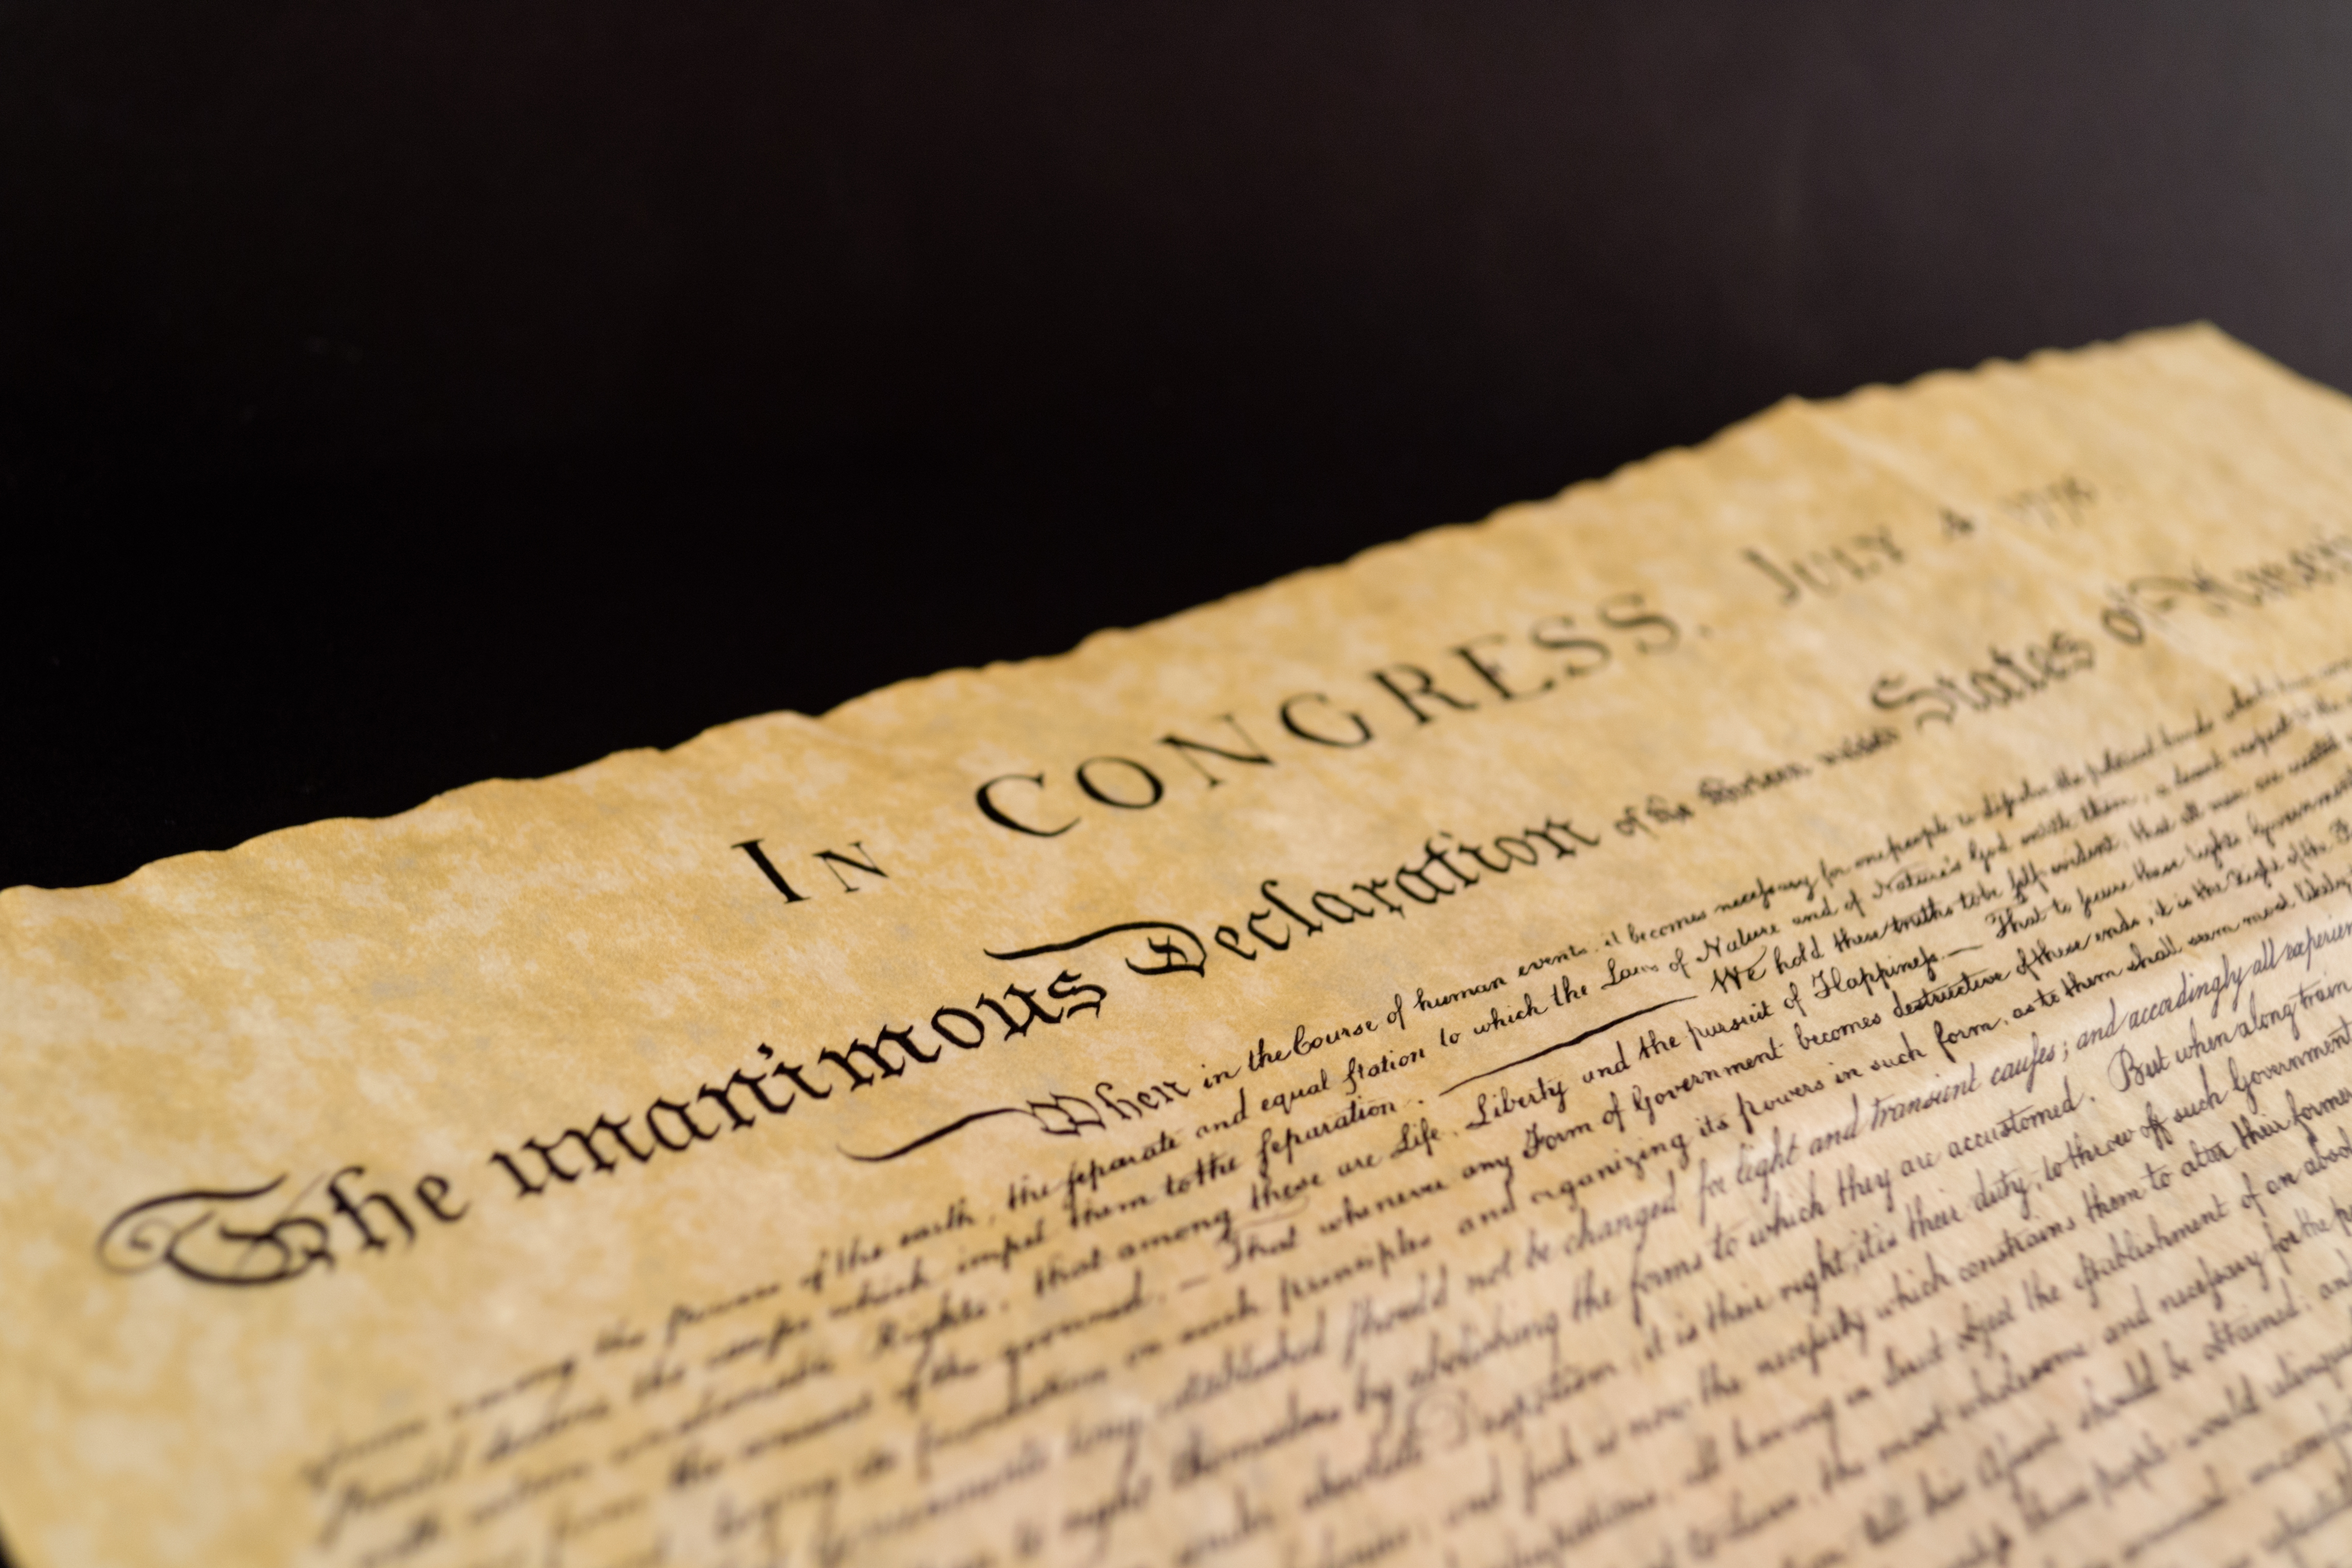 In CONGRESS. July 4 1776
The unanimous Declaration of the thirteen united States of
When in the Course of human events, it becomes necessary for one people to dissolve the political bands which have
among the powers of the earth, the separate and equal station to which the Laws of Nature and of Nature's God entitle them, a decent respect to the
should declare the causes which impel them to the separation. We hold these truths to be self-evident, that all men are created
with certain unalienable Rights, that among these are Life, Liberty and the pursuit of Happiness.— That to secure these rights, Government
from the consent of the governed, — That whenever any Form of Government becomes destructive of these ends, it is the Right of the
laying its foundation on such principles and organizing its powers in such form, as to them shall seem most likely
Governments long established should not be changed for light and transient causes; and accordingly all experien
to right themselves by abolishing the forms to which they are accustomed. But when a long train
under absolute Despotism, it is their right, it is their duty, to throw off such Government
and such is now the necessity which constrains them to alter their former
all having in direct object the establishment of an absol
the most wholesome and necessary for the p
till his Assent should be obtained; and
those people would